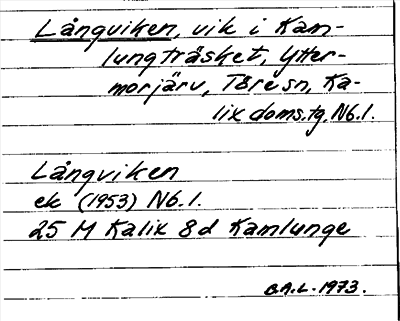 Långviken, vik i Kam-
lungträsket, Ytter-
morjärv, Töre sn, Ka-
lix doms.tg. Nb.l.
Långviken
ek (1953) Nb.l.
25 M Kalix 8d Kamlunge
B.A.L. 1973.